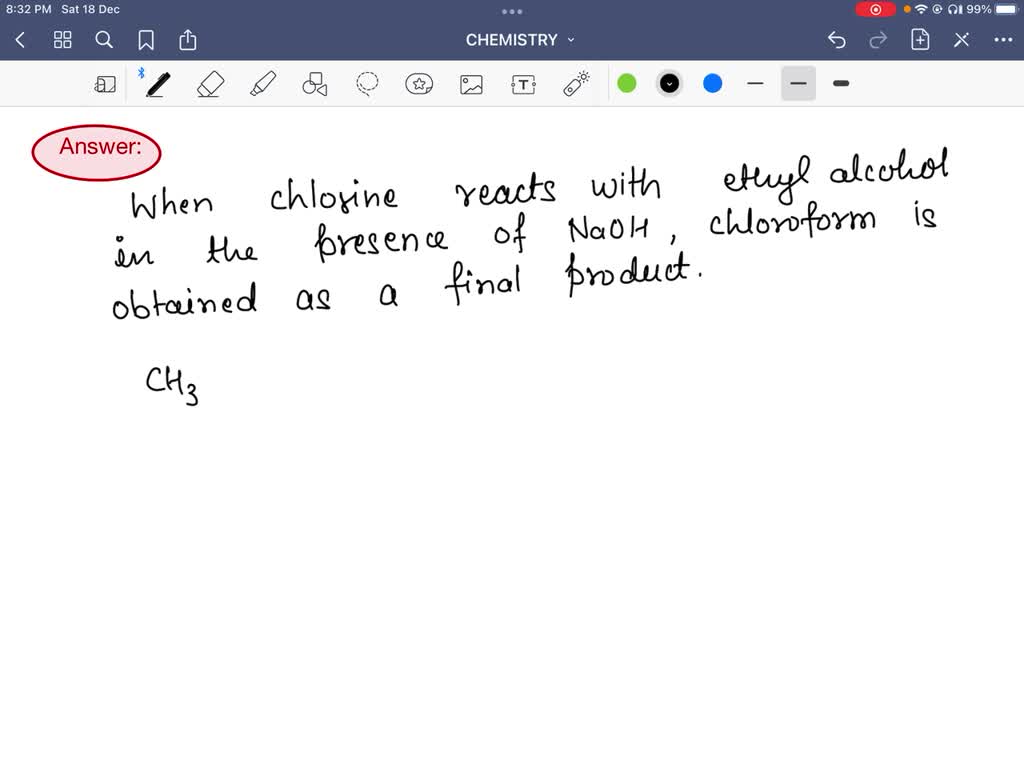 8:32 PM Sat 18 Dec
99%
CHEMISTRY
T
Answer:
When chlorine reacts with ethyl alcohol
in the presence of NaOH, chloroform is
obtained as a final product.
CH₃